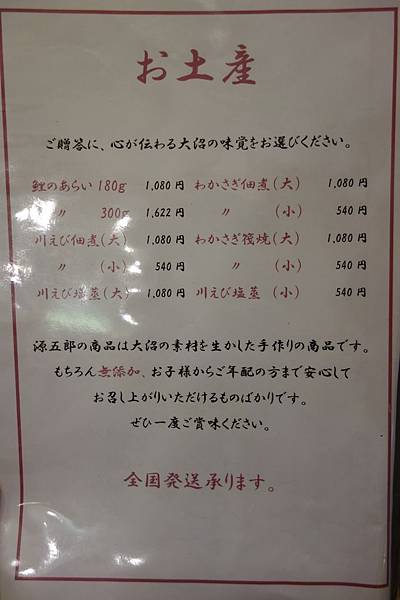 お土産
ご贈答に、心が伝わる大沼の味覚をお選びください。
鯉のあらい 180g 1,080円 わかさぎ佃煮(大) 1,080円
〃 300g 1,622円 〃 (小) 540円
川えび佃煮(大) 1,080円 わかさぎ筏焼(大) 1,080円
〃 (小) 540円 〃 (小) 540円
川えび塩蒸(大) 1,080円 川えび塩蒸 (小) 540円
源五郎の商品は大沼の素材を生かした手作りの商品です。
もちろん無添加、お子様からご年配の方まで安心して
お召し上がりいただけるものばかりです。
ぜひ一度ご賞味ください。
全国発送承ります。